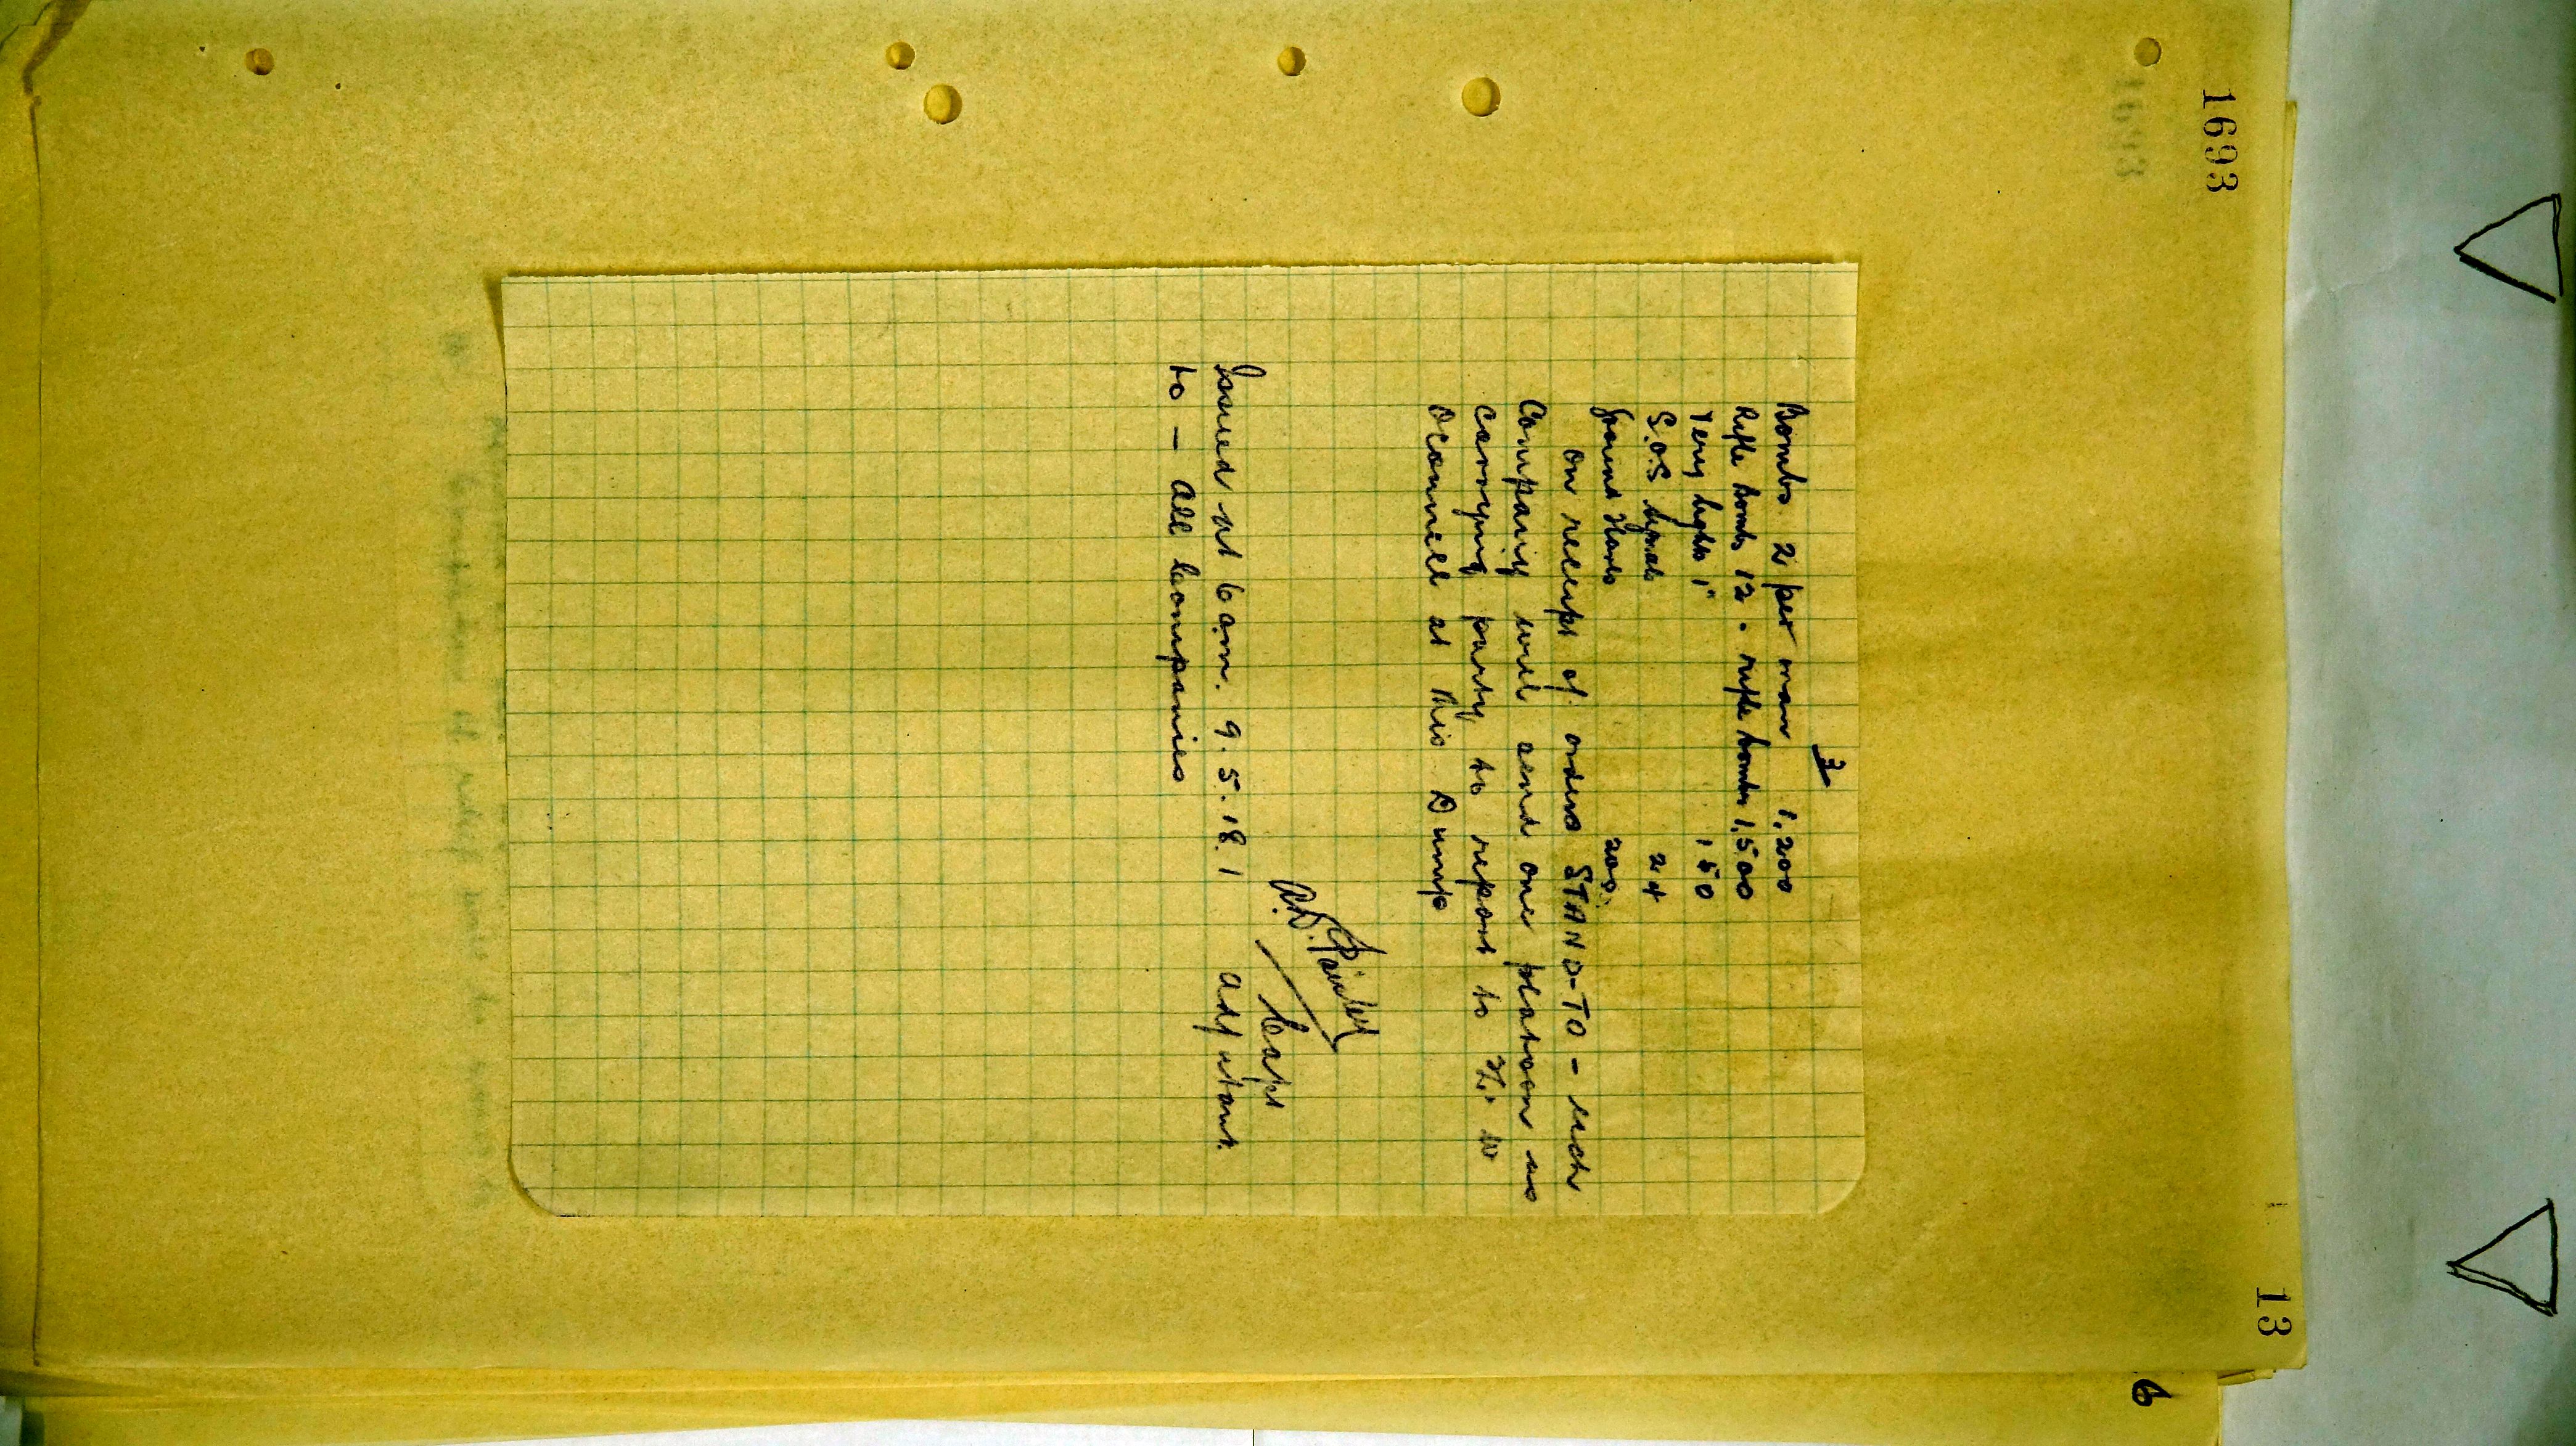 1693
13
3
Bombs 2 per man 1,200
Rifle bombs 12 . rifle bombs 1,500
Very lights 1" 150
S.O.S signals 24
Ground flares 200.
On receipt of orders STAND-TO - each
Company will send one platoon as
carrying party to report to Lt. W
O'Connell at this Dump
Capt
Issued at 6 am. 9.5.18.1 Adjutant.
to - All Companies
6